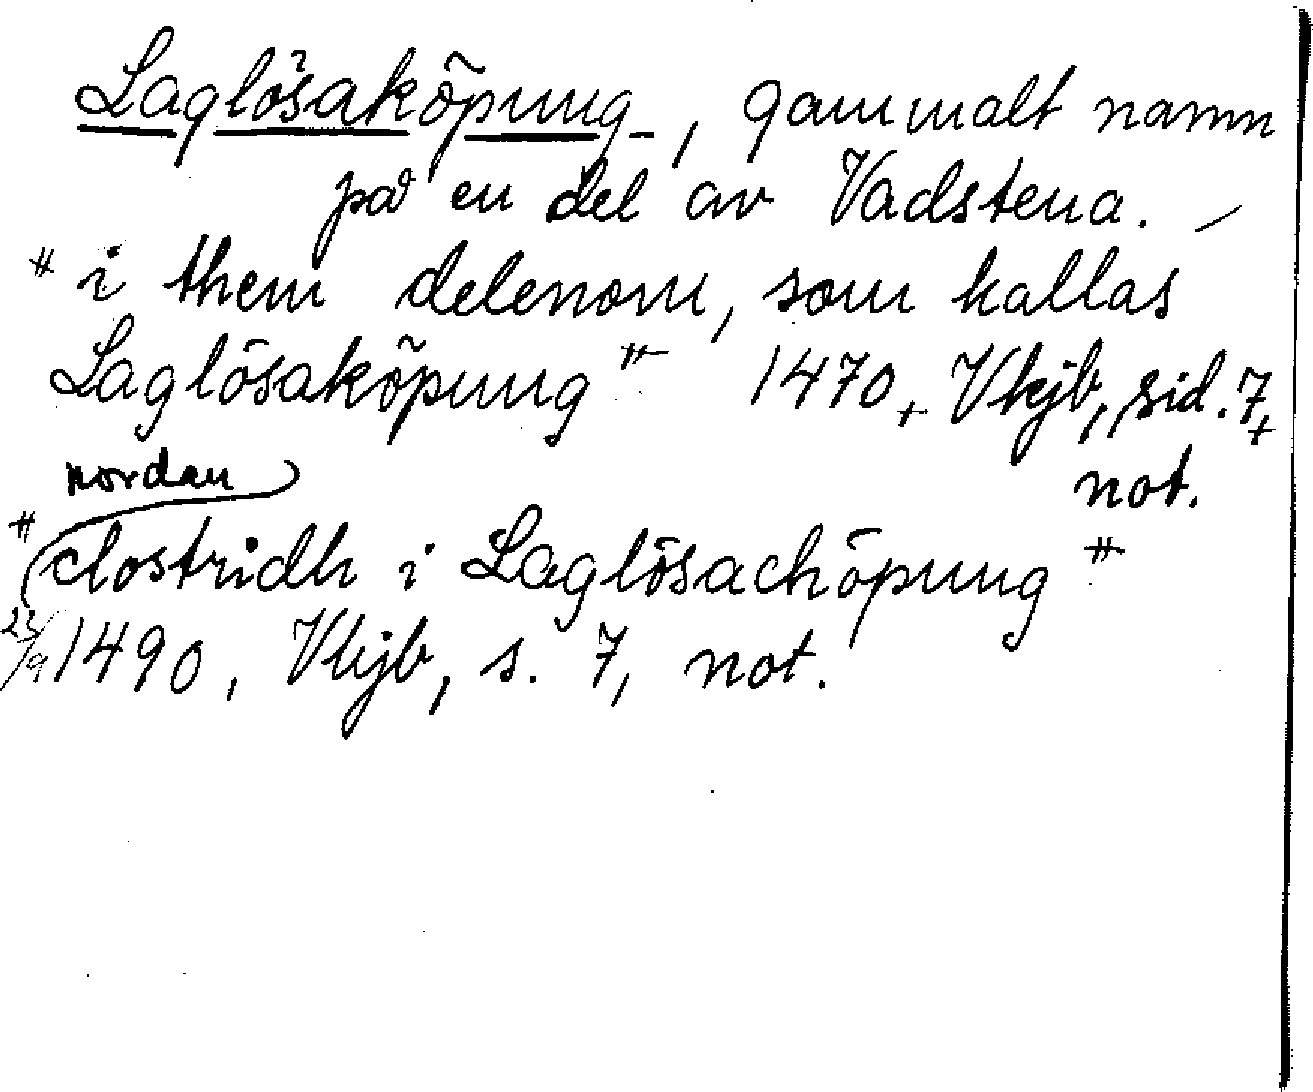 Laglösaköpung, gammalt namn
på en del av Vadstena. –
"i them delenom, som kallas
Laglösaköpung" 1470, Vkjb, sid. 7,
not.
nordan
"clostridh i Laglösachöpung"
23/9 1490, Vkjb, s. 7, not.